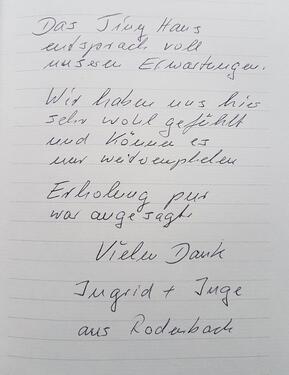 Das Tiny Haus
entsprach voll
unseren Erwartungen.
Wir haben uns hier
sehr wohl gefühlt
und können es
nur weiterempfehlen
Erholung pur
war angesagt
Vielen Dank
Ingrid + Inge
aus Rodenbach